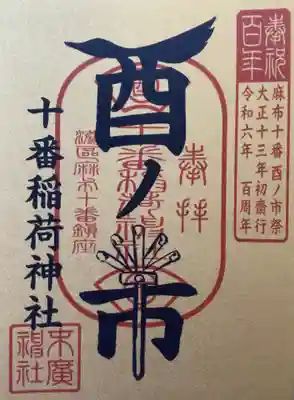 奉祝
百年
麻布十番 酉ノ市祭
大正十三年初齋行
令和六年 百周年
奉拝
酉ノ市
港區麻布十番鎮座
十番稲荷神社
末廣
神社